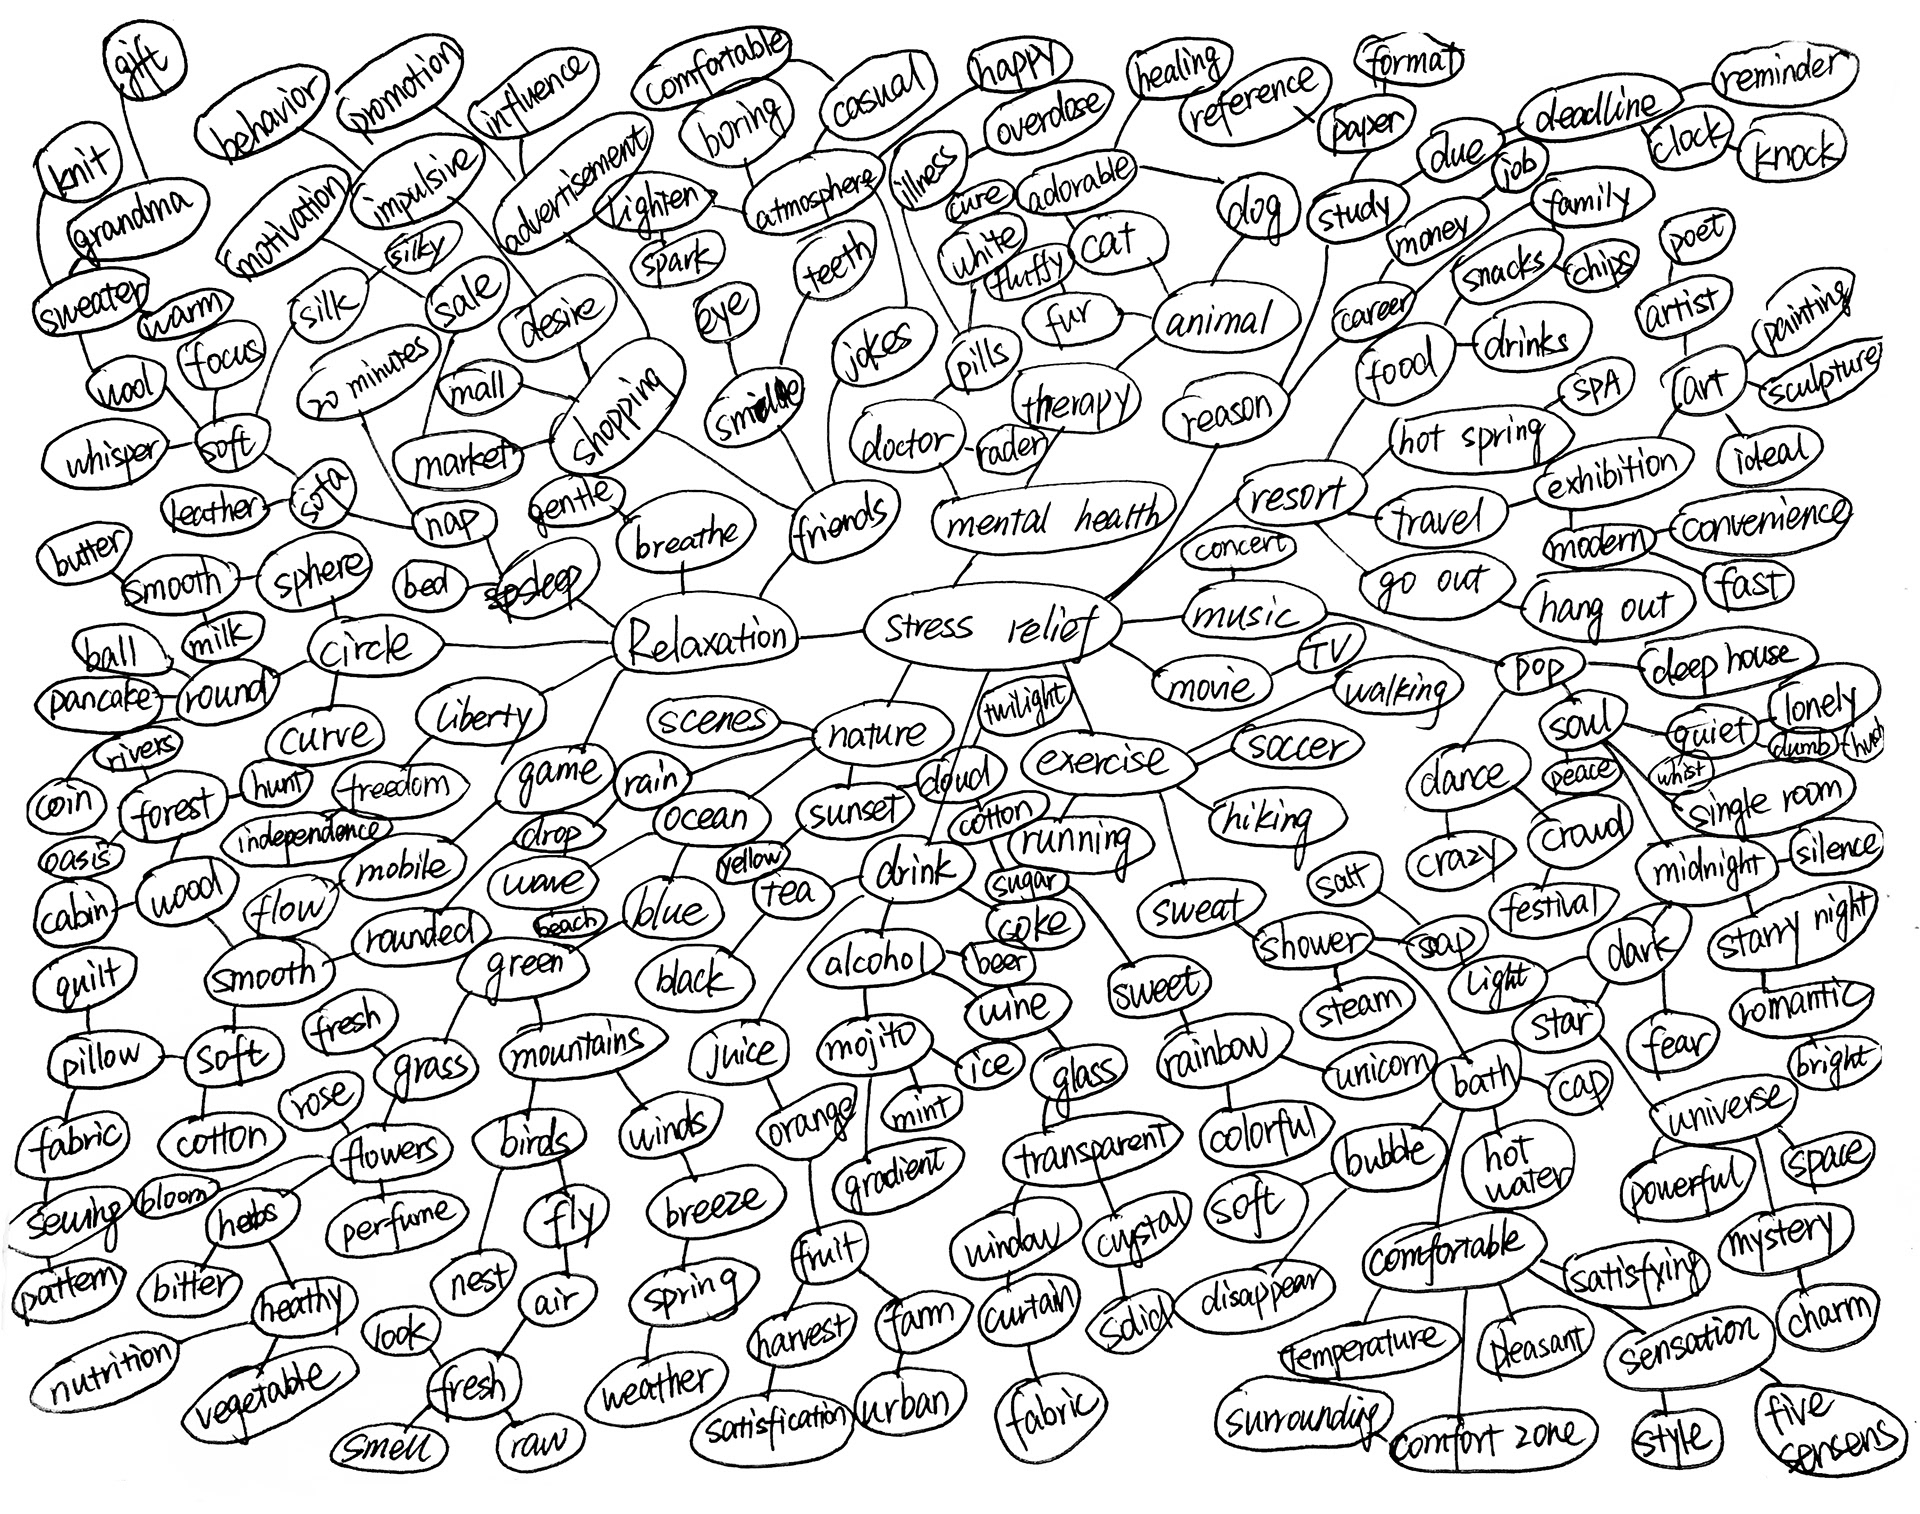 gift
comfortable
happy
healing
format
reminder
behavior
promotion
influence
boring
casual
overdose
reference
paper
due
deadline
clock
knock
knit
motivation
impulsive
advertisement
lighten
atmosphere
illness
cure
adorable
dog
study
job
family
grandma
silky
spark
teeth
white
fluffy
cat
money
snacks
chips
poet
sweater
warm
silk
sale
desire
eye
jokes
pills
fur
animal
career
food
drinks
artist
painting
wool
focus
20 minutes
mall
shopping
therapy
reason
SPA
art
sculpture
whisper
soft
market
friends
doctor
rader
hot spring
exhibition
ideal
leather
sofa
nap
gentle
breathe
mental health
resort
travel
modern
convenience
butter
smooth
sphere
bed
concert
go out
hang out
fast
ball
milk
circle
Relaxation
stress relief
music
TV
pop
deep house
pancake
round
liberty
scenes
nature
twilight
movie
walking
soul
quiet
lonely
dumb
rivers
curve
game
rain
cloud
exercise
soccer
dance
peace
whist
single room
coin
forest
hunt
freedom
drop
ocean
sunset
cotton
running
hiking
crowd
oasis
independence
mobile
wave
yellow
tea
drink
sugar
crazy
midnight
silence
cabin
wood
flow
rounded
beach
blue
coke
sweat
salt
festival
starry night
quilt
smooth
green
black
alcohol
beer
sweet
shower
soap
light
dark
fresh
wine
steam
star
fear
romantic
pillow
soft
grass
mountains
juice
mojito
ice
glass
rainbow
unicorn
bath
cap
bright
rose
universe
fabric
cotton
flowers
birds
winds
orange
mint
transparent
colorful
bubble
hot
water
space
sewing
bloom
herbs
perfume
fly
breeze
gradient
window
crystal
soft
powerful
mystery
pattern
bitter
heathy
nest
air
spring
fruit
curtain
solid
disappear
comfortable
satisfying
charm
nutrition
look
harvest
farm
temperature
pleasant
sensation
vegetable
fresh
weather
satisfication
urban
fabric
surrounding
comfort zone
style
five
sensens
smell
raw